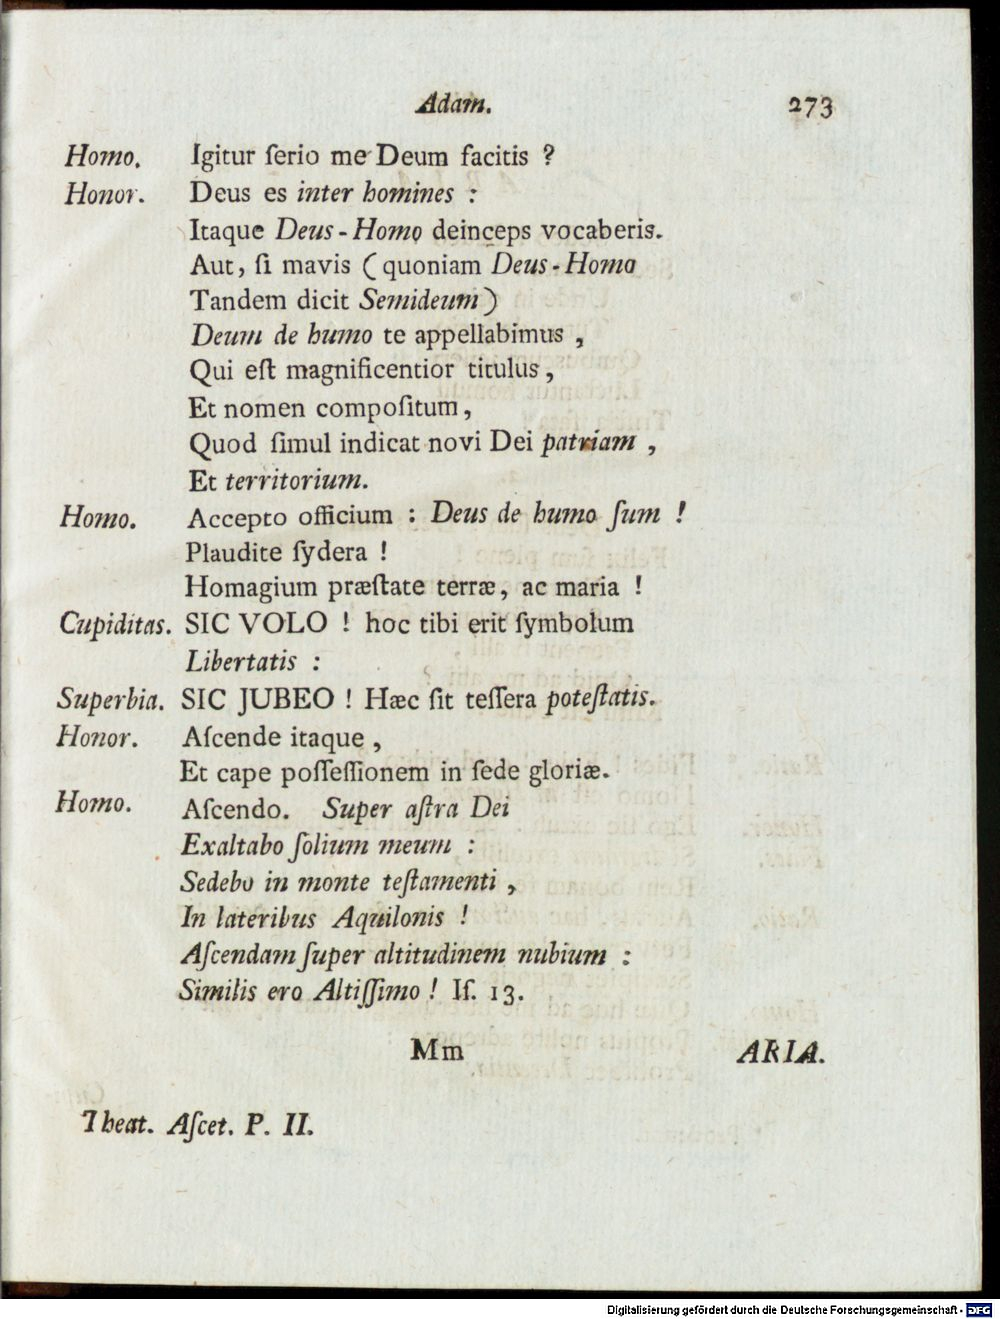 Adam. 273
Homo. Igitur ſerio me Deum facitis ?
Honor. Deus es inter homines :
Itaque Deus-Homo deinceps vocaberis.
Aut, ſi mavis (quoniam Deus-Homo
Tandem dicit Semideum)
Deum de humo te appellabimus ,
Qui eſt magnificentior titulus ,
Et nomen compoſitum ,
Quod ſimul indicat novi Dei patriam ,
Et territorium.
Homo. Accepto officium : Deus de humo ſum !
Plaudite ſydera !
Homagium præſtate terræ, ac maria !
Cupiditas. SIC VOLO ! hoc tibi erit ſymbolum
Libertatis :
Superbia. SIC JUBEO ! Hæc ſit teſſera poteſtatis.
Honor. Aſcende itaque ,
Et cape poſſeſſionem in ſede gloriæ.
Homo. Aſcendo. Super aſtra Dei
Exaltabo ſolium meum :
Sedebo in monte teſtamenti ,
In lateribus Aquilonis !
Aſcendam ſuper altitudinem nubium :
Similis ero Altiſſimo ! Iſ. 13.
Mm ARIA.
Theat. Aſcet. P. II.
Digitalisierung gefördert durch die Deutsche Forschungsgemeinschaft - DFG